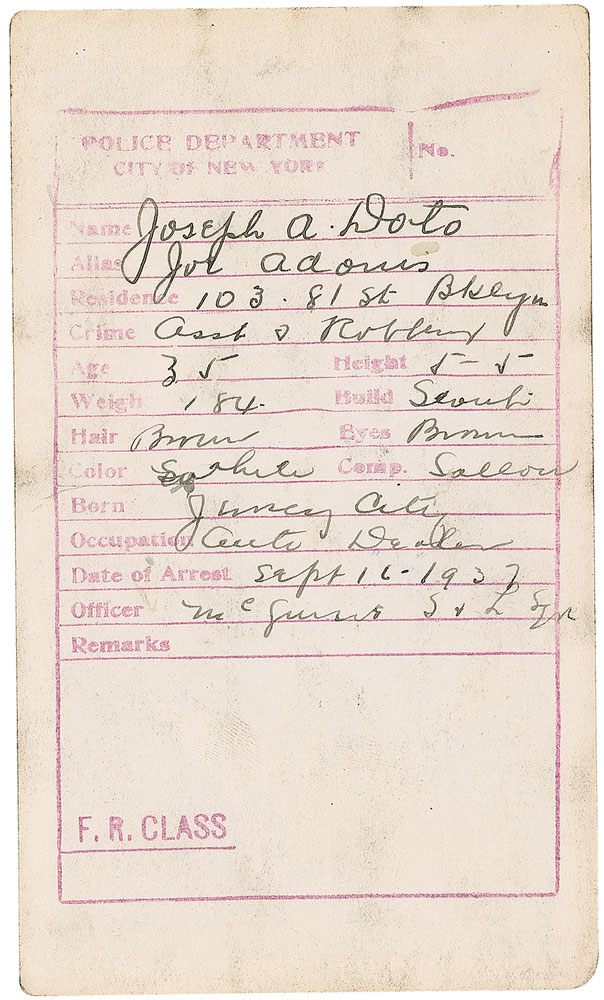 POLICE DEPARTMENT
CITY OF NEW YORK
No.
Name Joseph A. Doto
Alias Joe Adonis
Residence 103 - 81 St Bklyn
Crime Asst & Robbery
Age 35 Height 5-5
Weigh 184. Build Stout
Hair Brown Eyes Brown
Color White Comp. Sallow
Born Jersey City
Occupation Auto Dealer
Date of Arrest Sept 16-1937
Officer
Remarks
F. R. CLASS